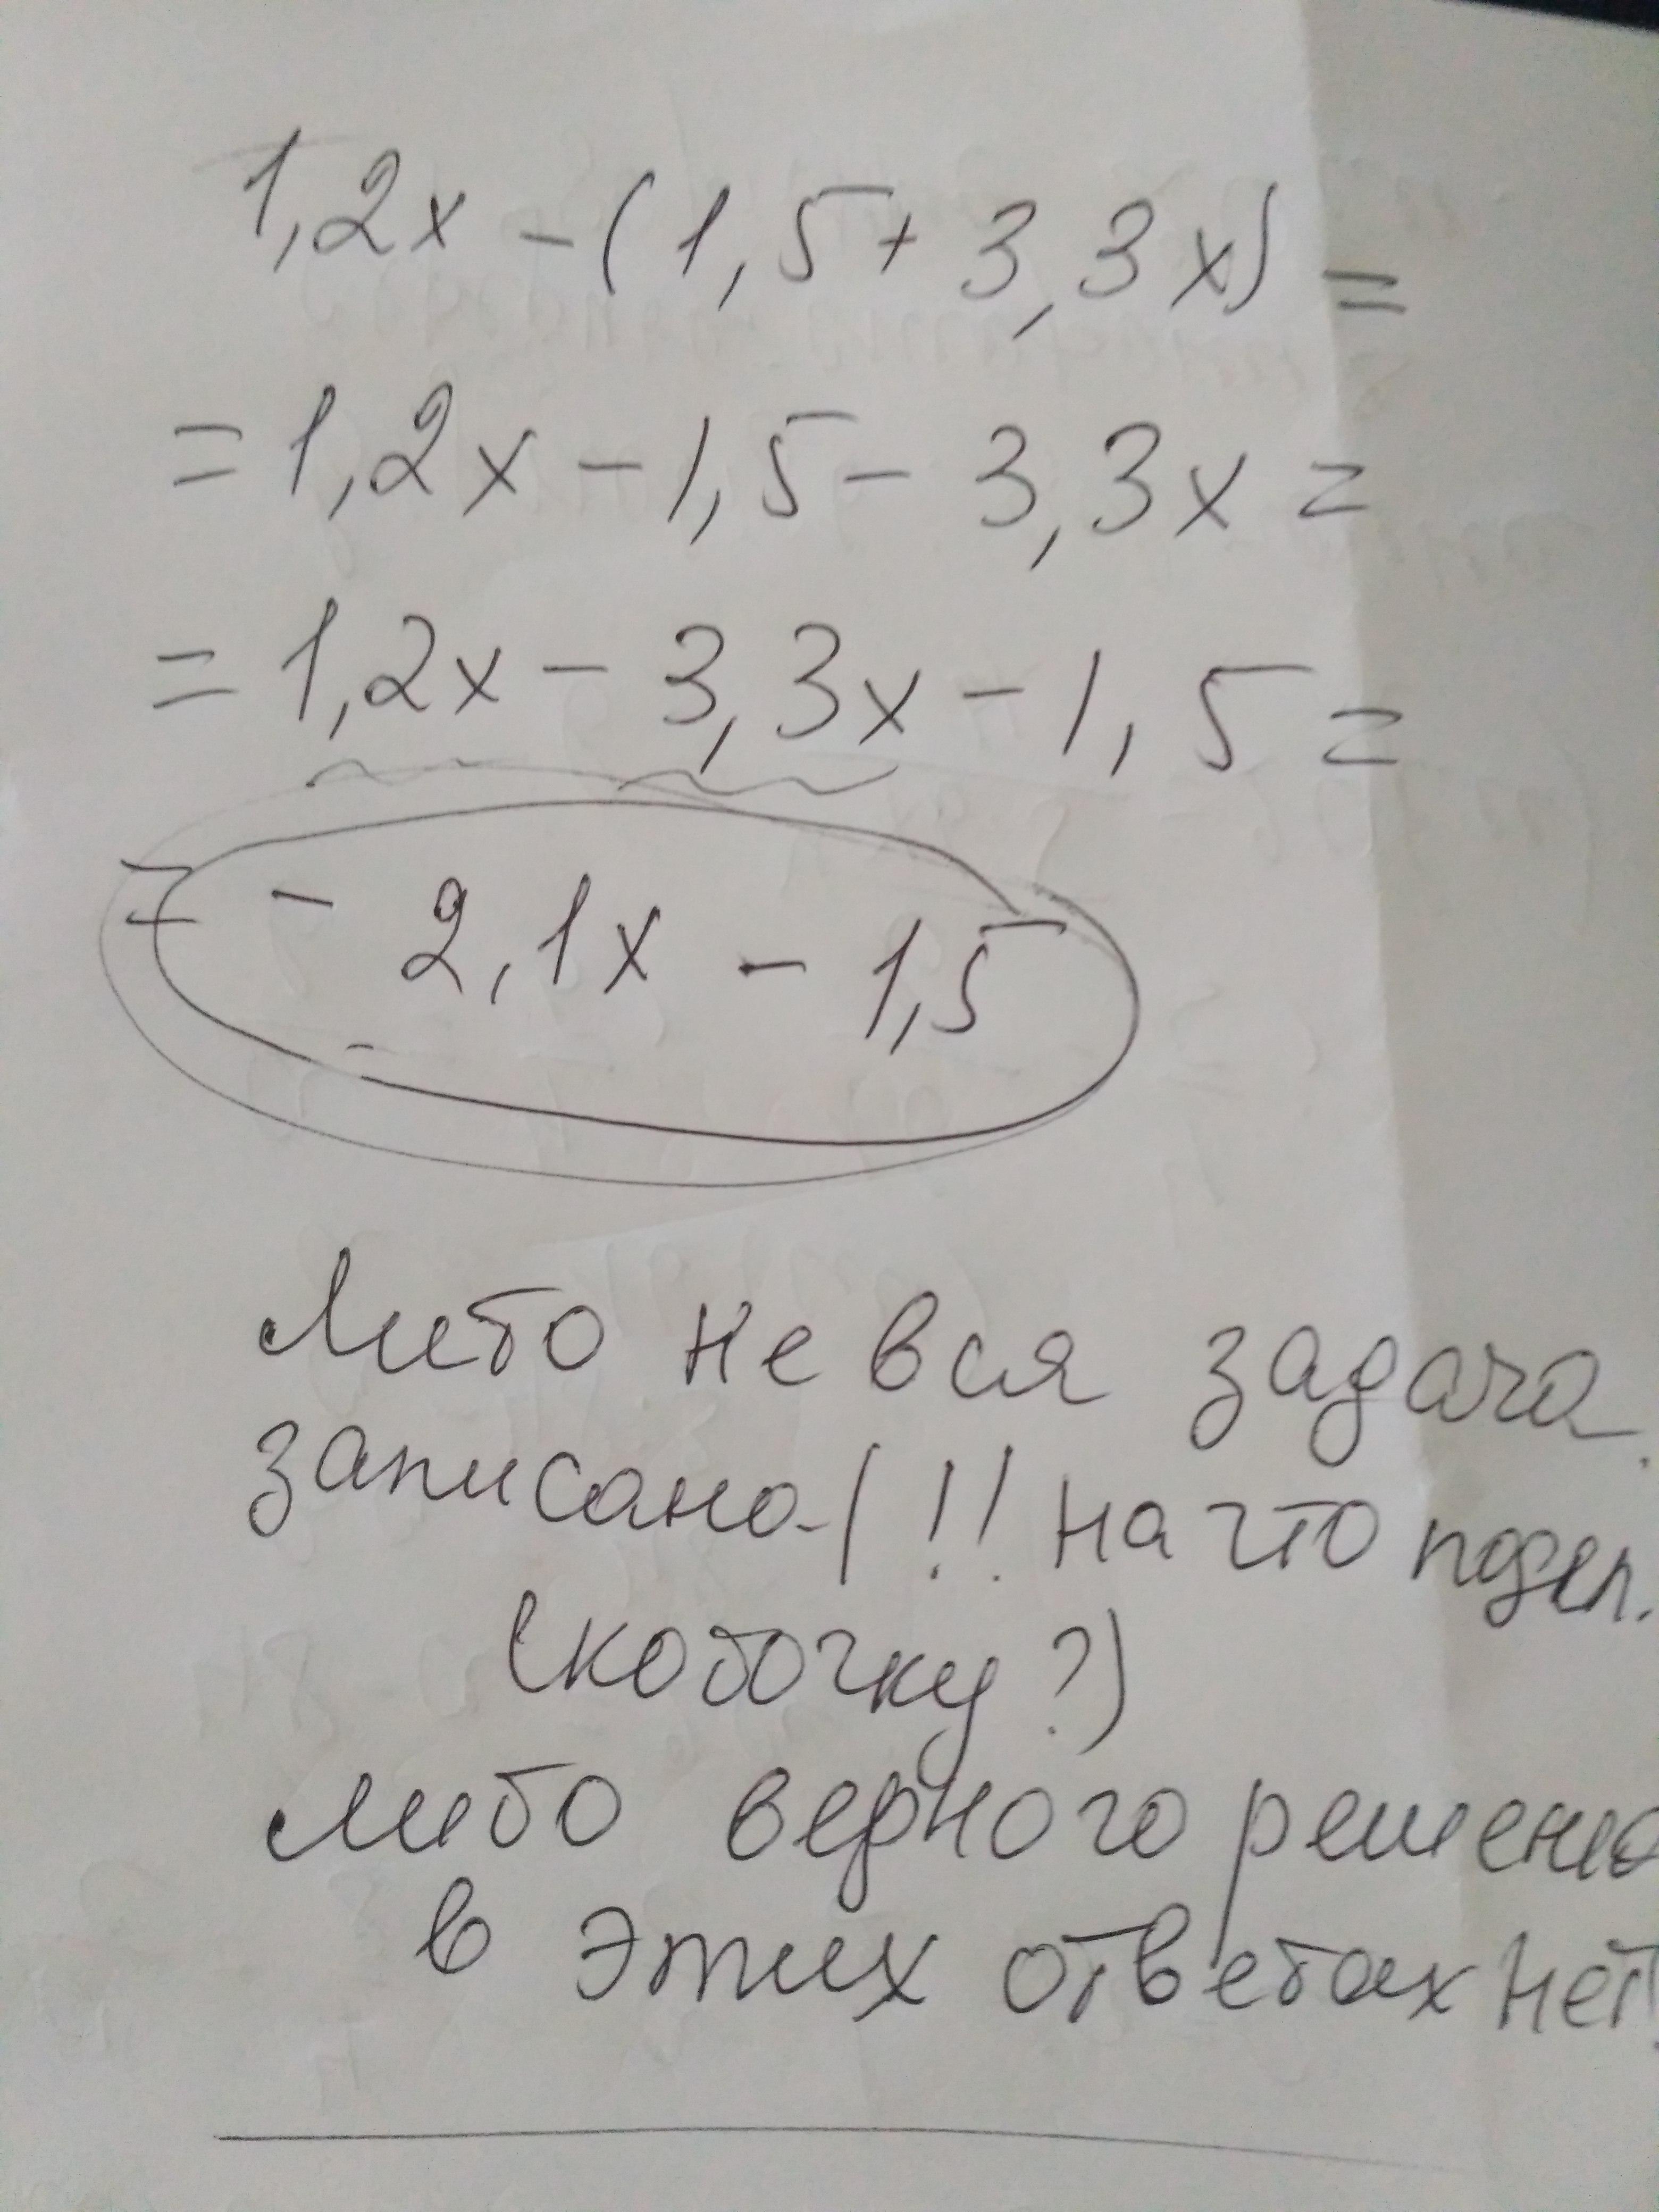 1,2x - (1,5 + 3,3x) =
= 1,2x - 1,5 - 3,3x =
= 1,2x - 3,3x - 1,5 =
= - 2,1x - 1,5
Либо не вся задача
записана (!! на что
(скобочку?)
либо верного решения
в этих ответах нет